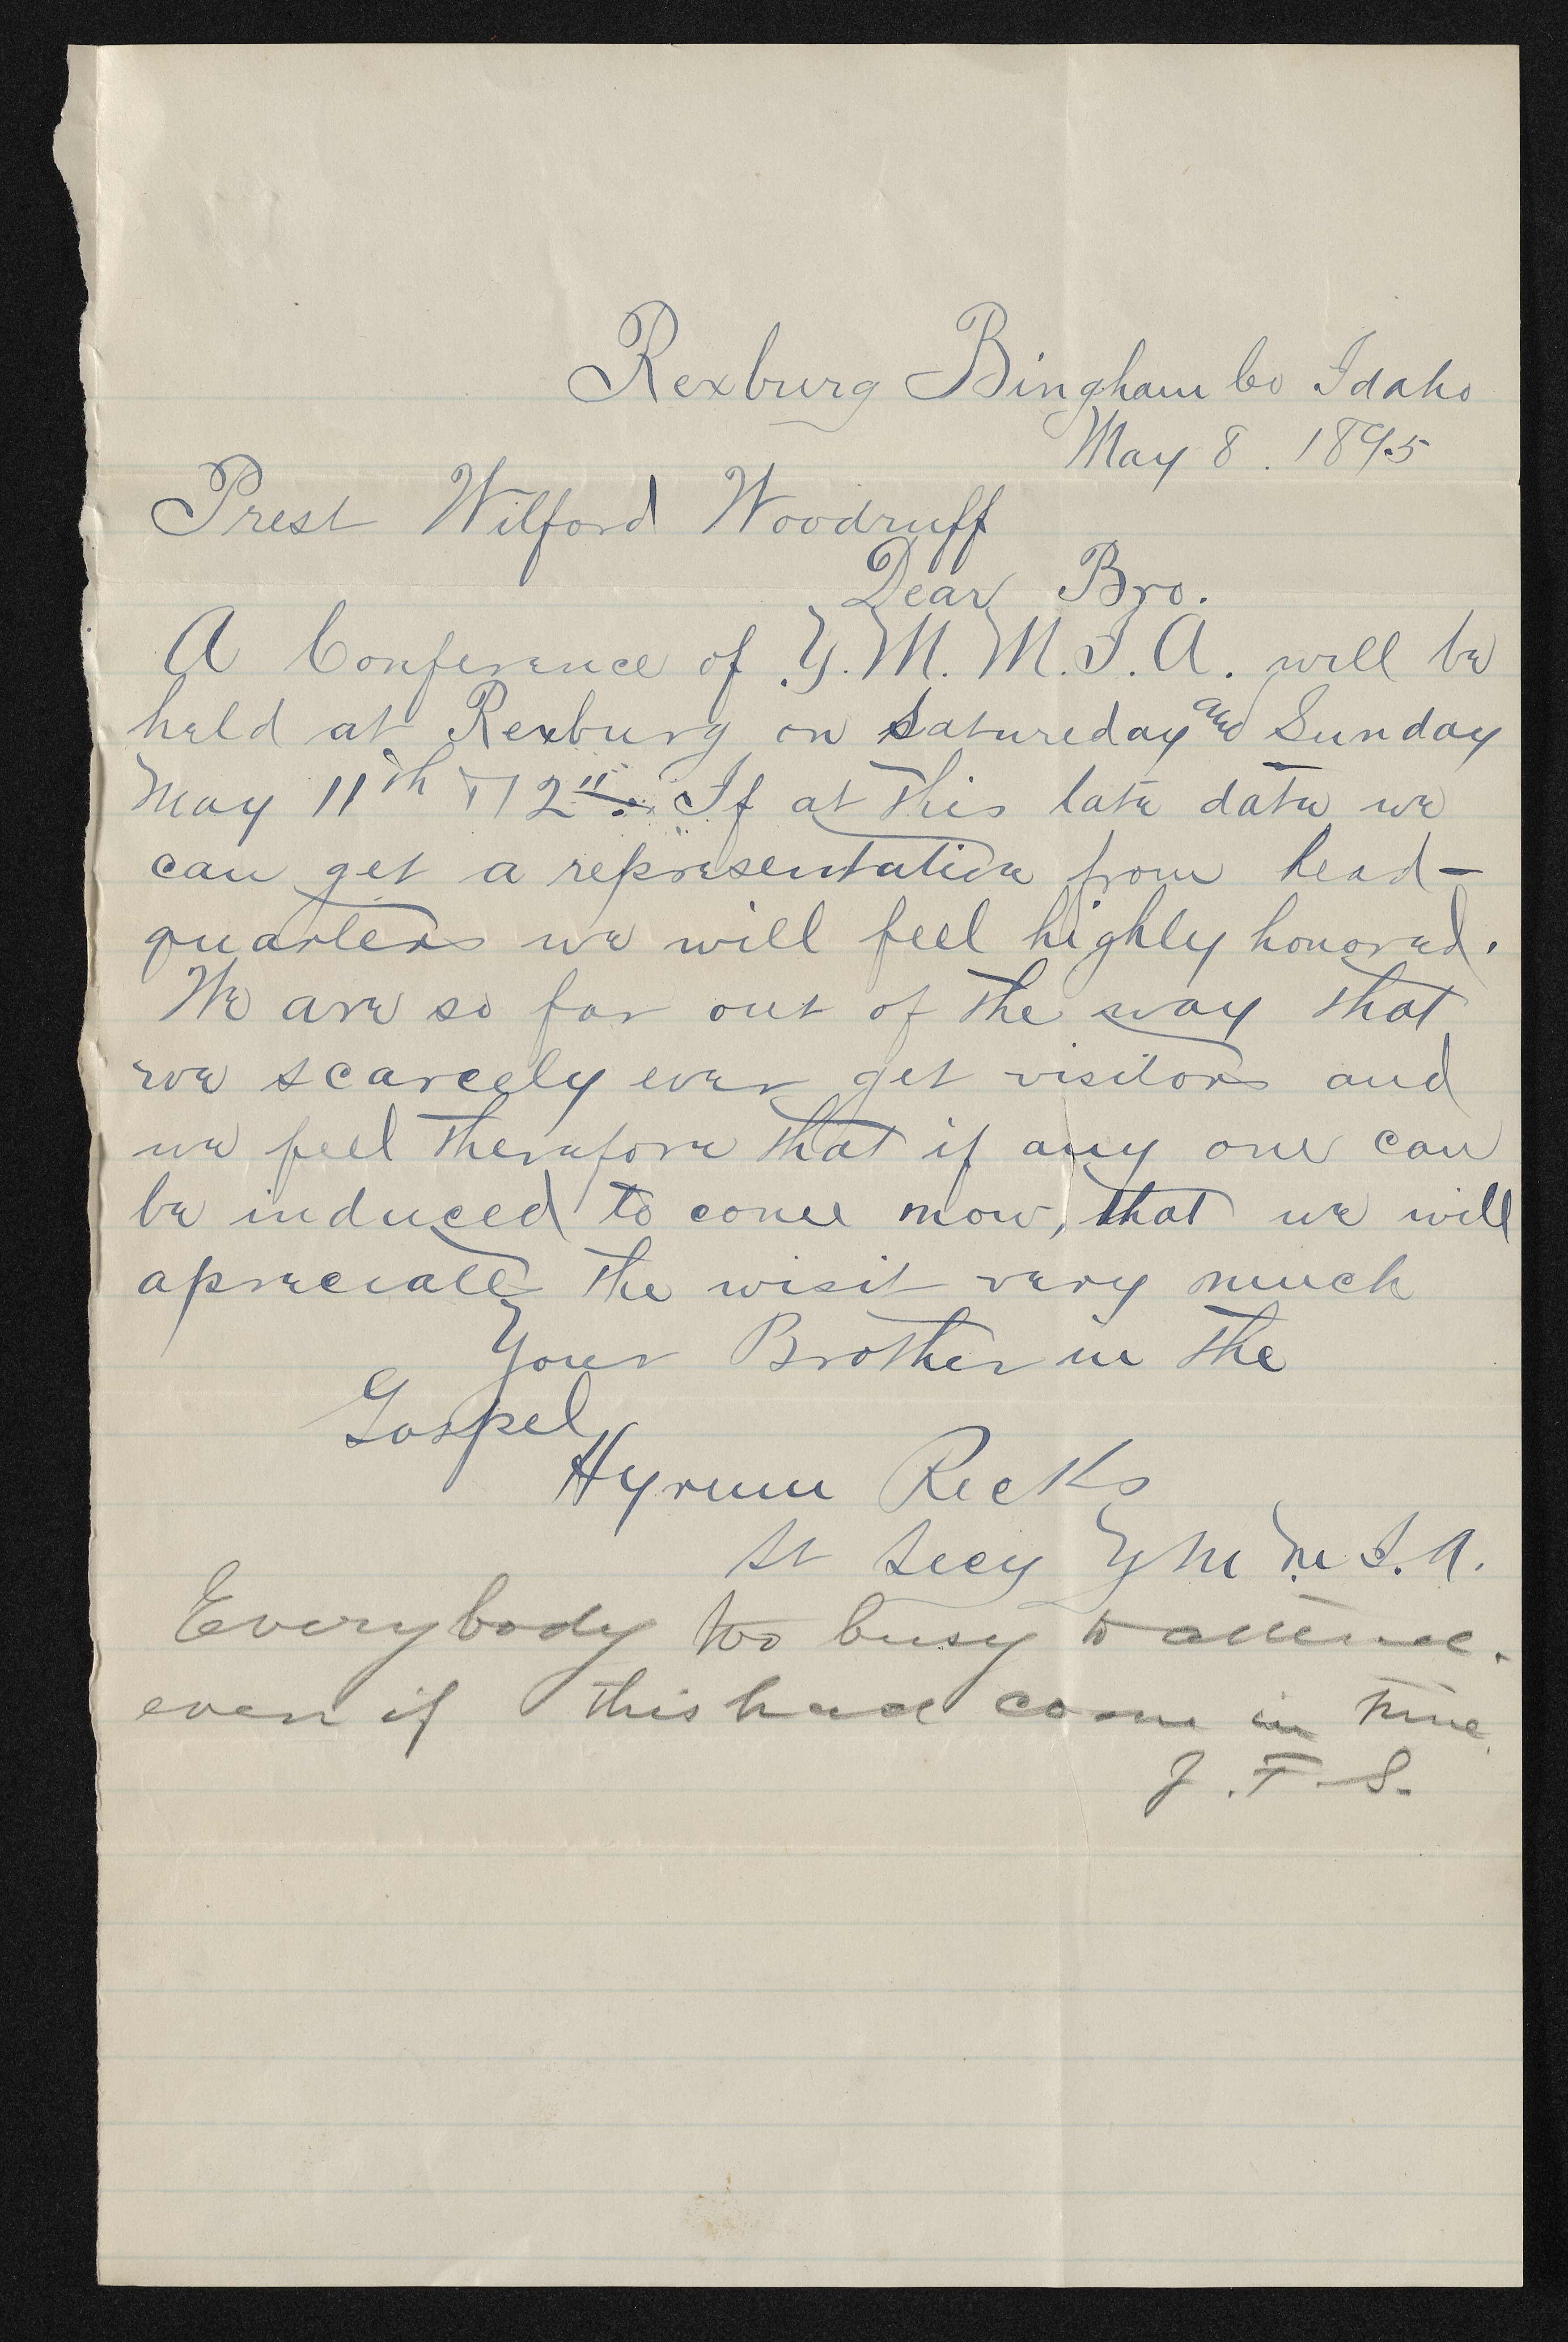 Rexburg Bingham Co Idaho
May 8. 1895
Prest Wilford Woodruff
Dear Bro.
A Conference of Y. M. M. I. A. will be
held at Rexburg on Satureday and Sunday
May 11th & 12". If at this late date we
can get a representation from head-
quarters we will feel highly honored.
We are so far out of the way that
we scarcely ever get visitors and
we feel therefore that if any one can
be induced to come now, that we will
apreciate the visit very much
Your Brother in the
Gospel
Hyrum Ricks
St Secy Y M M I. A.
Everybody too busy to attend.
even if this had come in time.
J. F. S.